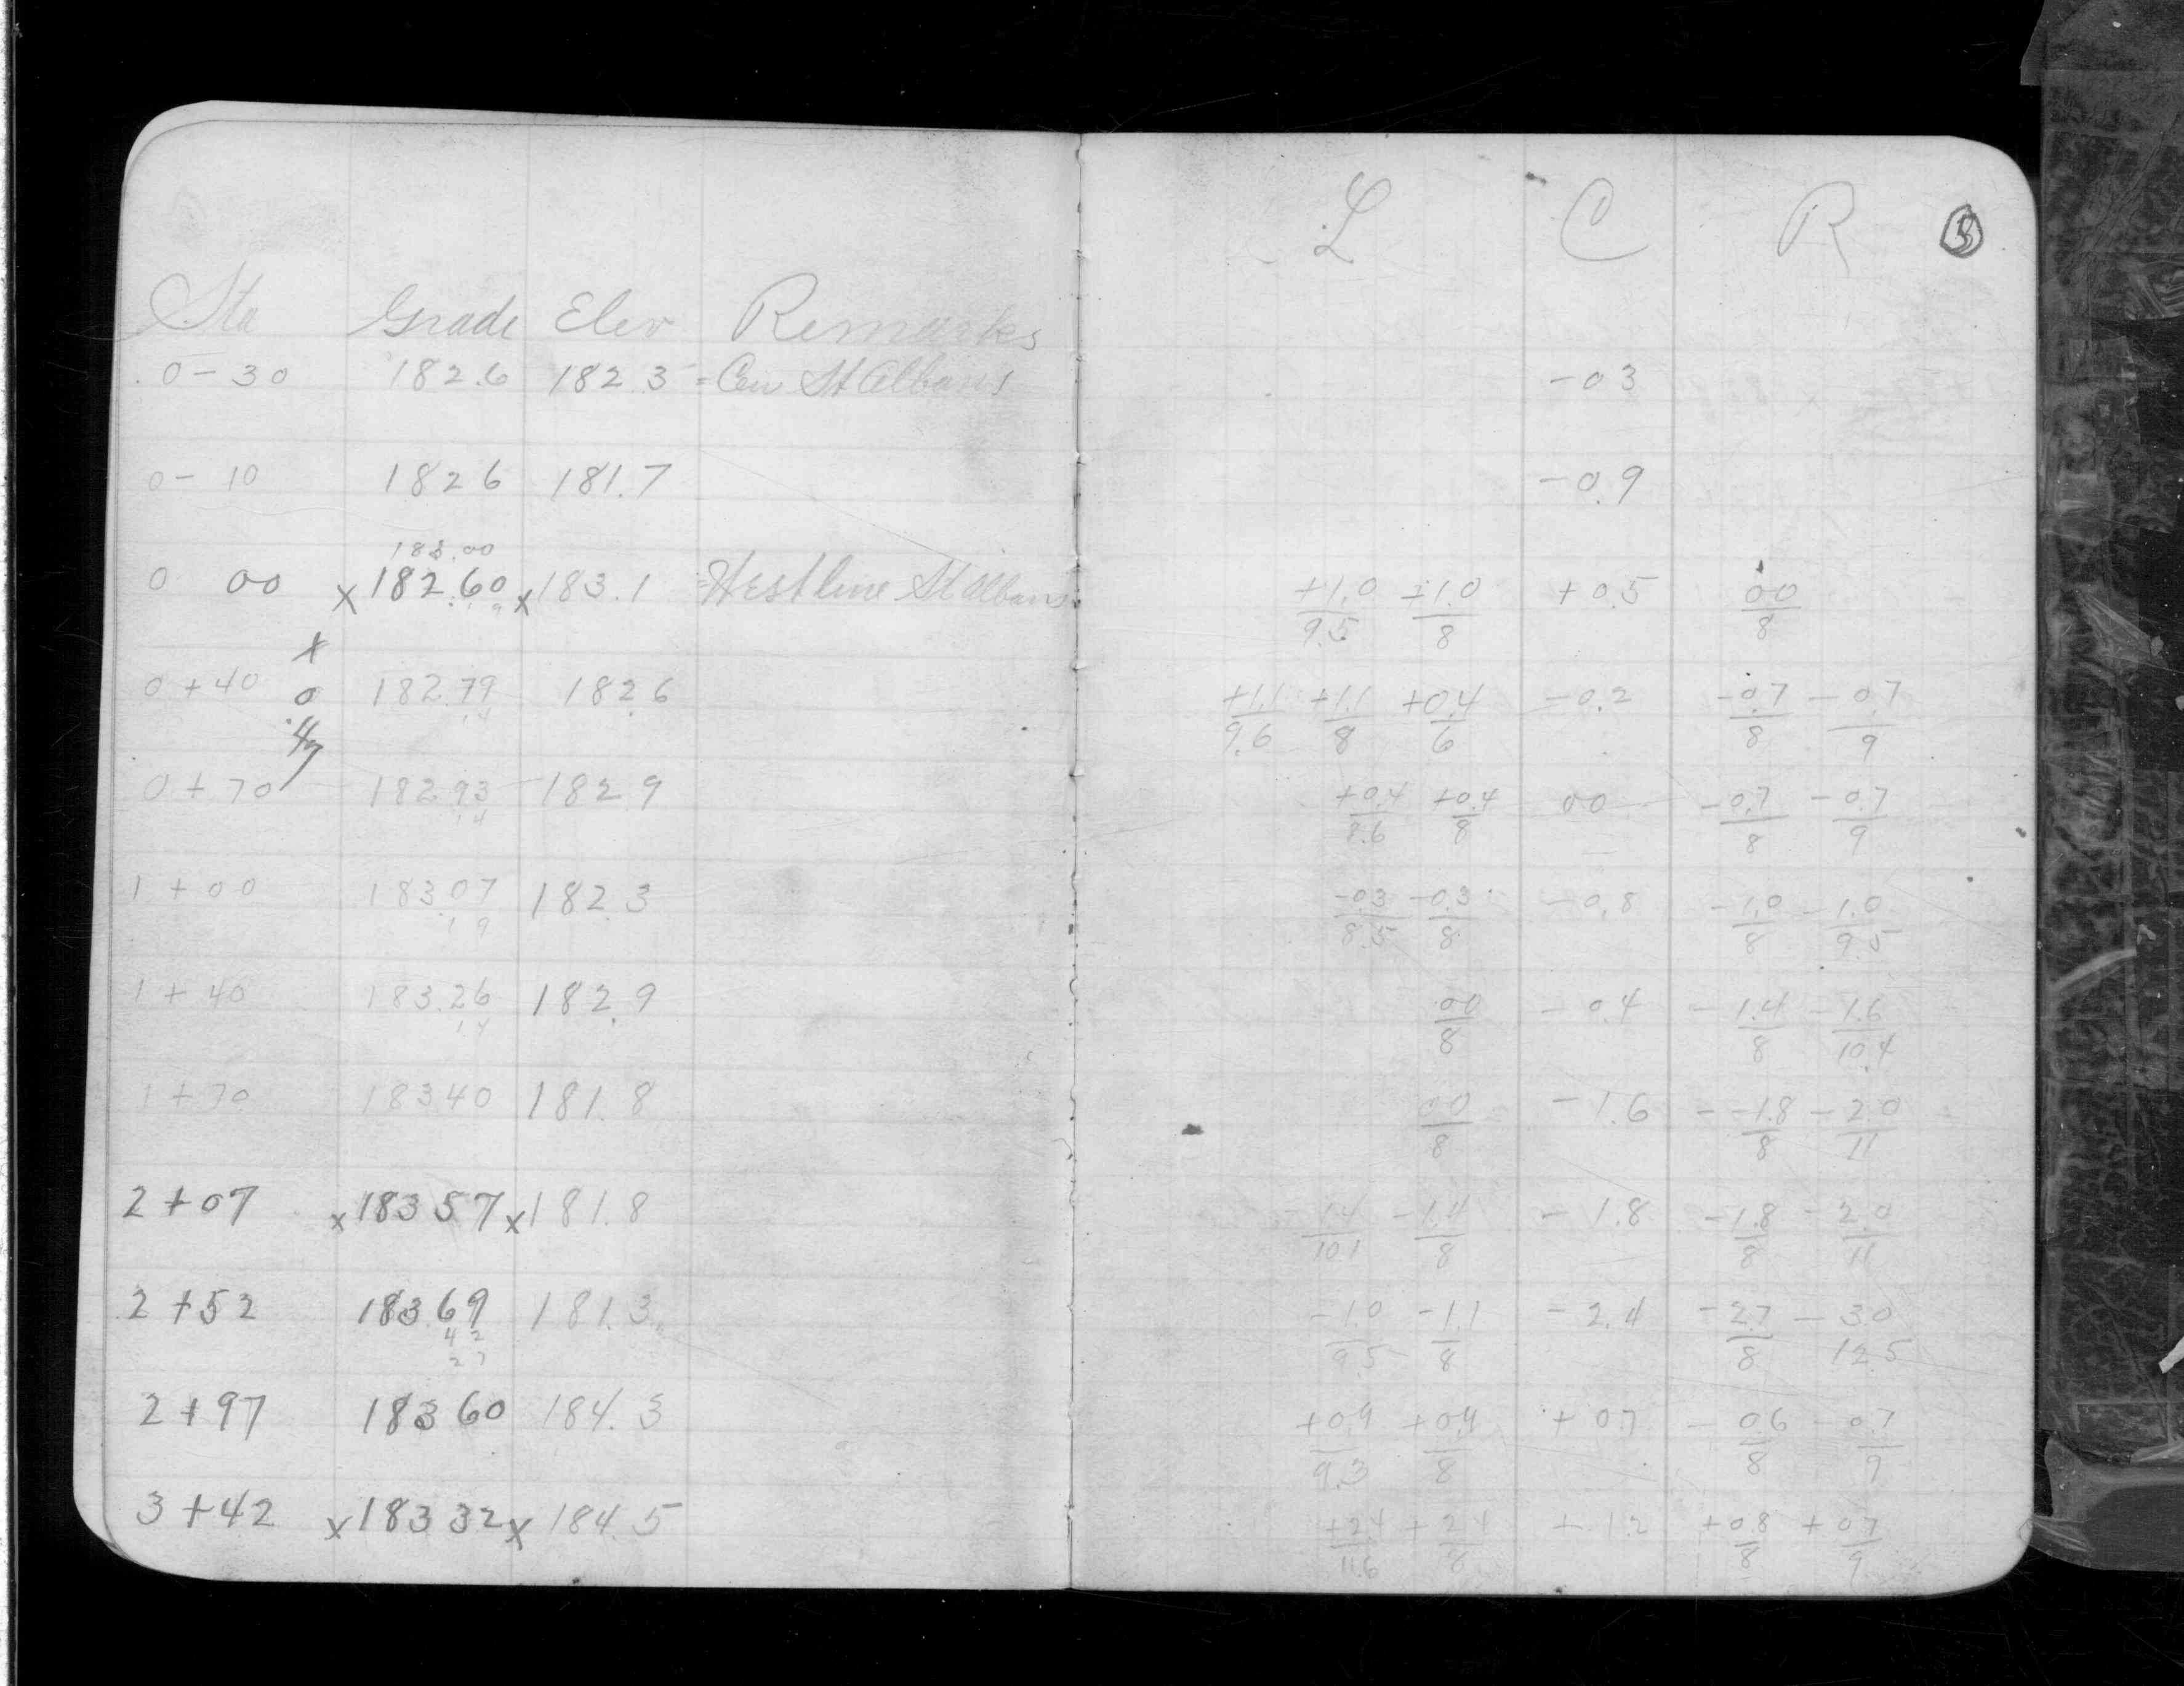 L C R 3
Sta Grade Elev Remarks
0-30 182.6 182.3 = Cen St Albans -0.3
0-10 182.6 181.7 -0.9
183.00
0 00 x 182.60 x 183.1 = West line St Albans +1.0/9.5 +1.0/8 +0.5 00/8
.19
x
0+40 0 182.79 182.6 +1.1/9.6 +1.1/8 +0.4/6 -0.2 -0.7/8 -0.7/9
14
0+70 182.93 182.9 +0.4/8.6 +0.4/8 00 -0.7/8 -0.7/9
14
1+00 183.07 182.3 -0.3/8.5 -0.3/8 -0.8 -1.0/8 -1.0/9.5
19
1+40 183.26 182.9 00/8 -0.4 -1.4/8 -1.6/10.4
14
1+70 183.40 181.8 00/8 -1.6 --1.8/8 -2.0/11
2+07 x 183.57 x 181.8 -1.4/10.1 -1.4/8 -1.8 -1.8/8 -2.0/11
2+52 183.69 181.3 -1.0/9.5 -1.1/8 -2.4 -2.7/8 -3.0/12.5
42
27
2+97 183.60 184.3 +0.9/9.3 +0.9/8 +0.7 -0.6/8 -0.7/9
3+42 x 183.32 x 184.5 +2.4/11.6 +2.4/8 +1.2 +0.8/8 +0.7/9